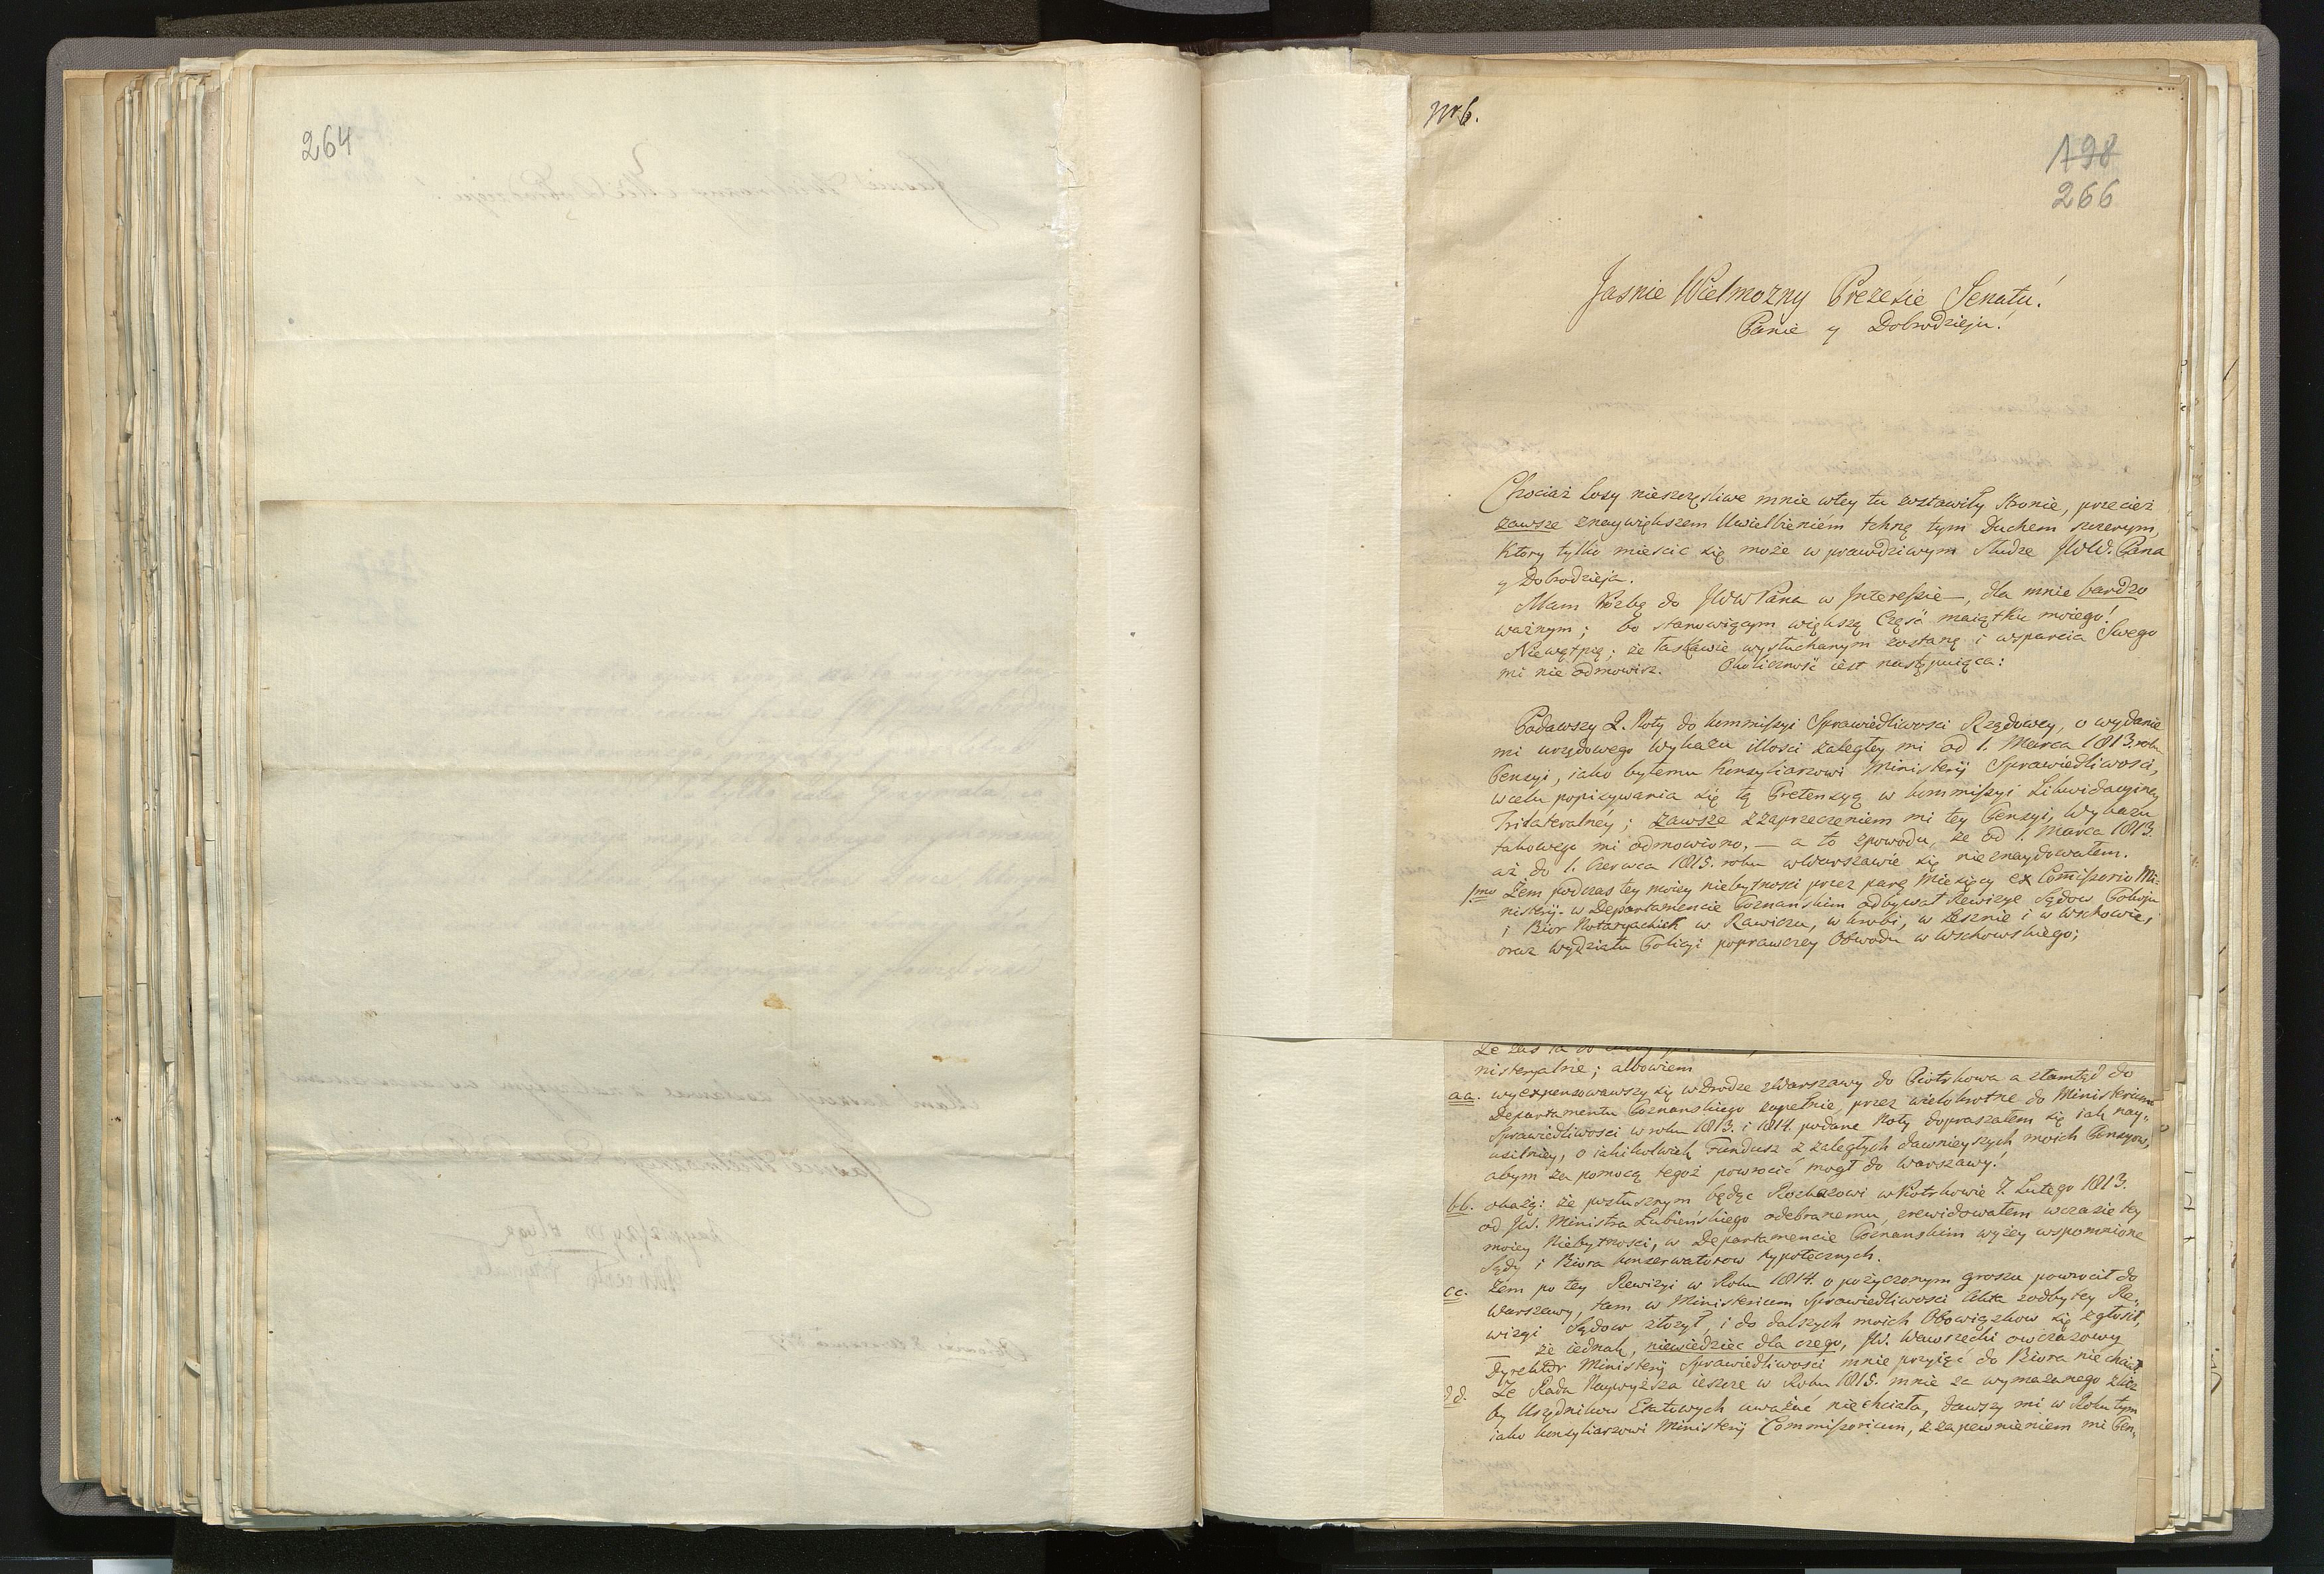 264
Nr 6.
198
266
Jasnie Wielmozny Prezesie Senatu!
Panie y Dobrodzieju!
Chociaż Losy nieszczęsliwe mnie wtey tu zostawiły stronie, przecież
zawsze znaywiększem Uwielbieniem tchnę tym Duchem szczerym,
ktory tylko miescic się może w prawdziwym Słudze JWW. Pana
y Dobrodzieja.
Mam Proźbę do JWW Pana w Interessie, dla mnie bardzo
ważnym; bo stanowiącym większą Część maiątku moiego!
Niewątpię; że łaskawie wysłuchanym zostanę i wsparcia Swego
mi nie odmowisz. Okoliczność iest następuiąca:
Podawszy 2. Noty do kommissyi Sprawiedliwosci Rządowey, o wydanie
mi urzędowego Wykazu illosci zaległey mi od 1. Marca 1813. roku
Pensyi, iako byłemu Konsyliarzowi Ministerij Sprawiedliwosci,
wcelu popisywania się tą Pretensyą w kommissyi Likwidacyiney
Trilateralney; zawsze zzaprzeczeniem mi tey Pensyi, Wykazu
takowego mi odmowiono, — a to zpowodu, że od 1. Marca 1813.
aż do 1. Czerwca 1815. roku wWarszawie się nieznaydowałem.
1mo Żem podczas tey moiey niebytnosci przez parę Miesięcy ex Comissorio Mi-
nisterij w Departamencie Poznanskim odbywał Rewizye Sądow Pokoju
i Biór Notaryackich w Rawiczu, w krobi, w Lesznie i w Wschowie,
oraz Wydziału Policyi poprawczey Obwodu w Wschowskiego;
nisteryalnie; albowiem
aa. wyexpensowawszy się wdrodze zWarszawy do Piotrkowa a ztamtąd do
Departamentu Poznanskiego zupełnie, przez wielokrotne do Ministerium
Sprawiedliwosci w roku 1813. i 1814. podane Noty dopraszałem się iak nay-
usilniey, o iakikolwiek Fundusz z zaległych dawnieyszych moich Pensyow,
abym za pomocą tegoż powrocić mogł do Warszawy!
bb. okażę: że posłusznym będąc Rozkazowi w Piotrkowie 7. Lutego 1813.
od JW. Ministra Łubieńskiego odebranemu, zrewidowałem wczasie tey
moiey Niebytnosci, w Departamencie Poznanskim wyżey wspomnione
Sądy i Biura konserwatorow hypotecznych.
cc. Żem po tey Rewizyi w Roku 1814. o pożyczonym groszu powrocił do
Warszawy, tam w Ministerium Sprawiedliwosci Akta zodbytey Re-
wizyi Sądow złożył, i do dalszych moich Obowiązkow się zgłosił,
że iednak, niewiedziec dla czego, JW. Wawrzecki owczasowy
Dyrektor Ministerij Sprawiedliwosci mnie przyiąć do Biura niechciał.
dd. Że Rada Naywyższa ieszcze w Roku 1815. mnie za wymazanego zlicz
by Urzędnikow Etatowych uważać niechciała, dawszy mi w Roku tym
iako konsyliarzowi Ministerij Commissorium, zzapewnieniem mi Pen-